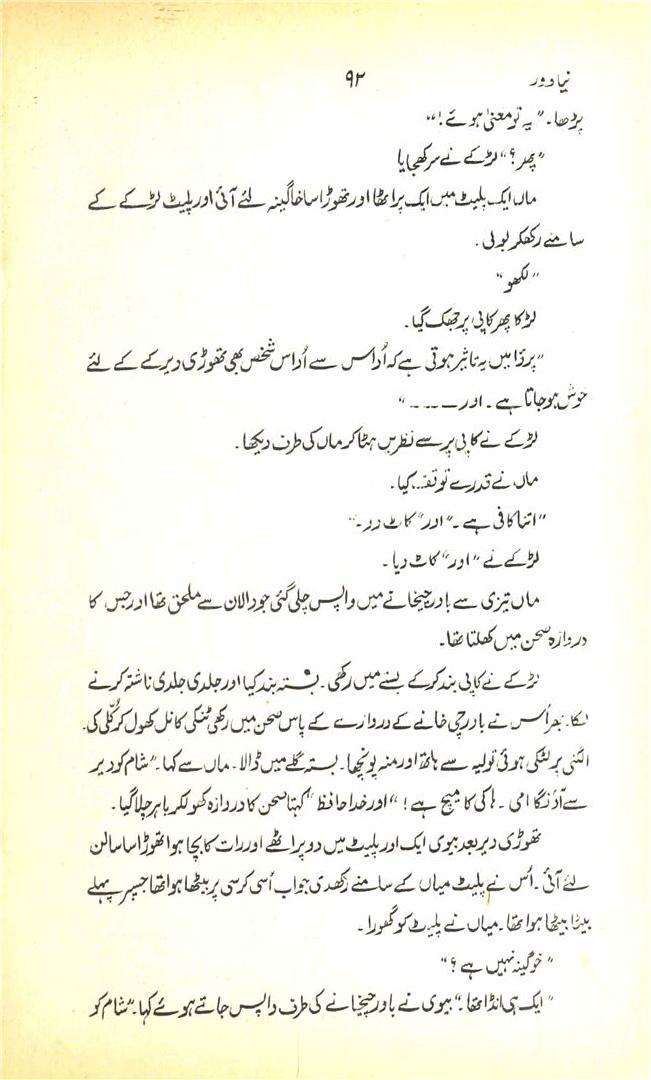 نیا دور ۹۲
پڑھا۔ "یہ تو معنیٰ ہوئے!"
"پھر؟" لڑکے نے سر کھجایا
ماں ایک پلیٹ میں ایک پراٹھا اور تھوڑا سا خاگینہ لئے آئی اور پلیٹ لڑکے کے
سامنے رکھکر بولی۔
"لکھو"
لڑکا پھر کاپی پر جھک گیا۔
میں یہ تاثیر ہوتی ہے کہ اُداس سے اُداس شخص بھی تھوڑی دیر کے کے لئے
خوش ہو جاتا ہے۔ اور ــ ــ ــ ــ"
لڑکے نے کاپی پر سے نظریں ہٹا کر ماں کی طرف دیکھا۔
ماں نے قدرے توقف کیا۔
"اتنا کافی ہے۔" اور" کاٹ دو۔"
لڑکے نے "اور" کاٹ دیا۔
ماں تیزی سے باورچیخانے میں واپس چلی گئی جو دالان سے ملحق تھا اور جس کا
دروازہ صحن میں کھلتا تھا۔
لڑکے نے کاپی بند کر کے بستے میں رکھی۔ بستہ بند کیا اور جلدی جلدی ناشتہ کرنے
لگا۔ پھر اُس نے باورچی خانے کے دروازے کے پاس صحن میں رکھی ٹنکی کا نل کھول کر کُلّی کی۔
الگنی پر لٹکی ہوئی تولیہ سے ہاتھ اور منہ پونچھا۔ بستہ گلے میں ڈالا۔ ماں سے کہا۔ "شام کو دیر
سے آؤنگا امی۔ ہاکی کا میچ ہے!" اور خدا حافظ" کہتا صحن کا دروازہ کھولکر باہر چلا گیا۔
تھوڑی دیر بعد بیوی ایک اور پلیٹ میں دو پراٹھے اور رات کا بچا ہوا تھوڑا سا سالن
لئے آئی۔ اُس نے پلیٹ میاں کے سامنے رکھدی جو اب اُسی کرسی پر بیٹھا ہوا تھا جسپر پہلے
بیٹا بیٹھا ہوا تھا۔ میاں نے پلیٹ کو گھورا۔
"خوگینہ نہیں ہے؟"
"ایک ہی انڈا تھا۔" بیوی نے باورچیخانے کی طرف واپس جاتے ہوئے کہا۔ "شام کو